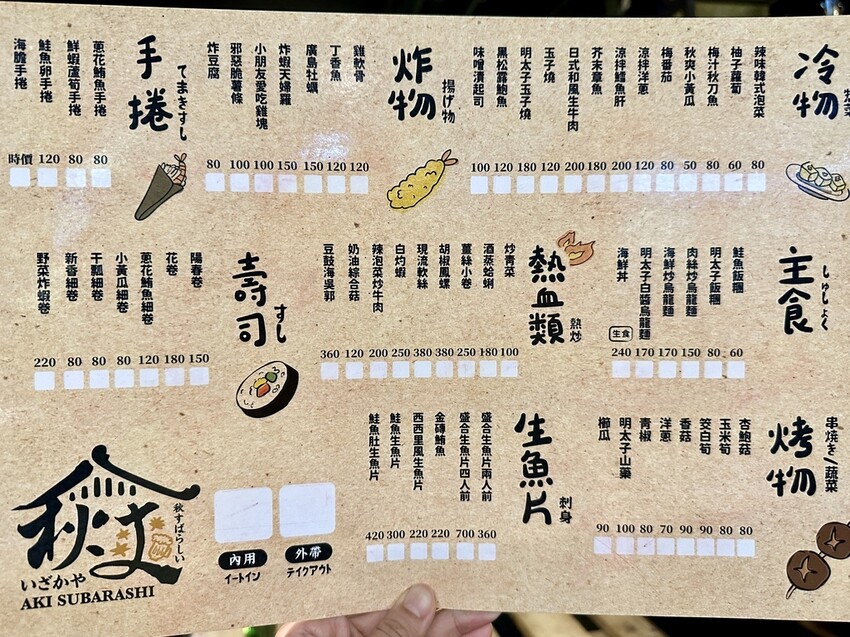 冷物
辣味韓式泡菜 80
柚子蘿蔔 60
梅汁秋刀魚 80
秋爽小黃瓜 50
梅番茄 80
涼拌洋蔥 120
涼拌鱈魚肝 200
芥末章魚 180
日式和風生牛肉 200
玉子燒 120
明太子玉子燒 180
黑松露鮑魚 120
味噌漬起司 100
炸物
揚げ物
雞軟骨 120
丁香魚 120
廣島牡蠣 150
炸蝦天婦羅 150
小朋友愛吃雞塊 100
邪惡脆薯條 100
炸豆腐 80
手捲
てまきすし
蔥花鮪魚手捲 80
鮮蝦蘆筍手捲 80
鮭魚卵手捲 120
海膽手捲 時價
主食
しゅしょく
鮭魚飯糰 60
明太子飯糰 80
肉絲炒烏龍麵 150
海鮮炒烏龍麵 170
明太子白醬烏龍麵 170
海鮮丼 生食 240
熱血類
熱炒
炒青菜 100
酒蒸蛤蜊 180
薑絲小卷 250
胡椒鳳螺 380
現流軟絲 380
白灼蝦 250
辣泡菜炒牛肉 200
奶油綜合菇 120
豆鼓海吳郭 360
壽司
すし
陽春卷 150
花卷 180
蔥花鮪魚細卷 120
小黃瓜細卷 80
干瓢細卷 80
新香細卷 80
野菜炸蝦卷 220
烤物
串焼き/蔬菜
杏鮑菇 80
玉米筍 80
筊白筍 90
香菇 90
洋蔥 70
青椒 80
明太子山藥 100
櫛瓜 90
生魚片
刺身
盛合生魚片兩人前 360
盛合生魚片四人前 700
金磚鮪魚 220
西西里風生魚片 220
鮭魚生魚片 300
鮭魚肚生魚片 420
外帶
テイクアウト
內用
イートイン
秋すばらしい
いざかや
AKI SUBARASHI